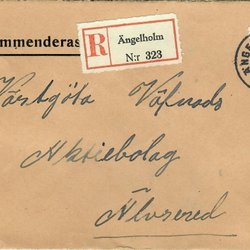 ommenderas
R
Ängelholm
N:r 323
ÄNGE
Västgöta Väfnads
Aktiebolag
Älvsered